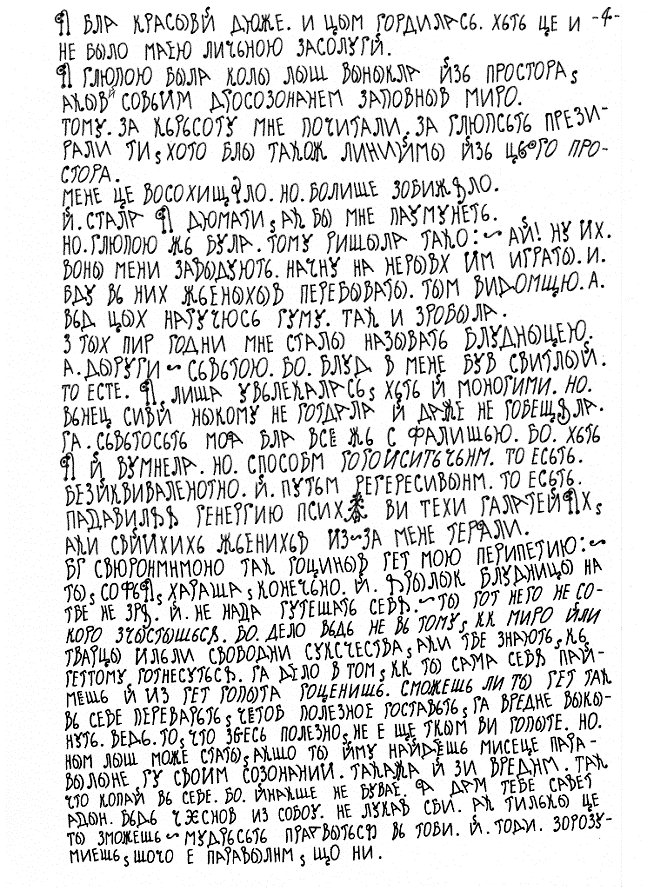 Я БЛА КРАСЫВЙ ДЮЖЕ. И ЦЫМ ГОРДИЛАСЬ. ХЬТЬ ЦЕ И -4-
НЕ БЫЛО МАЕЮ ЛИЧЬНОЮ ЗАСОЛУГЙ.
Я ГЛЮПОЮ БЫЛА КОЛЫ ЛЫШ ВЫНЫКЛА ЙЗЬ ПРОСТОРА,
АКЫВЙ СОВЬИМ ДРОСОЗОНАНЕМ ЗАПОВНЫВ МИРО.
ТОМУ. ЗА КЬРЬСОТУ МНЕ ПОЧИТАЛИ, ЗА ГЛЮПСЬТЬ ПРЕЗИ-
РАЛИ ТИ, ХОТО БЛЫ ТАКОЖ ЛИНИЙМЫ ЙЗЬ ЦЬОГО ПРО-
СТОРА.
МЕНЕ ЦЕ ВОСОХИЩЯЛО. НО. БОЛИШЕ ЗОБИЖѢЛО.
Й. СТАЛА Я ДЮМАТИ, АК БЫ МНЕ ПАУМУНЕТЬ.
НО. ГЛЮПОЮ ЖЬ БУЛА. ТОМУ РИШЫЛА ТАКО:~ АЙ! НУ ИХ.
ВОНЫ МЕНИ ЗАВЫДУЮТЬ. НАЧНУ НА НЕРЫВХ ИМ ИГРАТЫ. И.
БДУ ВЬ НИХ ЖЬЕНЫХЫВ ПЕРЕБЫВАТЫ. ТЫМ ВИДОМЩЮ. А.
ВЬД ЦЫХ НАГУЧЮСЬ ГУМУ. ТАК И ЗРОБЫЛА.
З ТЫХ ПИР ГОДНИ МНЕ СТАЛЫ НАЗЫВАТЬ БЛУДНЫЦЕЮ.
А. ДЫРУГИ~ СЬВЬТОЮ. БО. БЛУД В МЕНЕ БУВ СВИТЛЫЙ.
ТО ЕСТЕ. Я ЛИША УВЬЛЕКАЛАСЬ, ХЬТЬ Й МОНОГИМИ. НО.
ВЬНЕЦ СИВЙ НЫКОМУ НЕ ГОТДАЛА Й ДАЖЕ НЕ ГОБЕЩѢЛА.
ГА. СЬВЬТОСЬТЬ МОЯ БЛА ВСЁ ЖЬ С ФАЛИШЬЮ. БО. ХЬТЬ
Я Й ВУМНЕЛА. НО. СПОСОБМ ГОГОЙСИТЬЧЬНМ. ТО ЕСЬТЬ.
БЕЗЙКВИВАЛЕНОТНО. Й. ПУТЬМ РЕГЕРЕСИВЫНМ. ТО ЕСЬТЬ.
ПАДАВИЛѢѢ ГЕНЕРГИЮ ПСИХ ВИ ТЕХИ ГАЛАТЕЙЯХ,
АКИ СВЙИХИХЬ ЖЬЕНИХЬВ ИЗ~ЗА МЕНЕ ТЕРАЛИ.
БГ СВЮРОНМНМОНО ТАК ГОЦИНЫВ ГЕТ МОЮ ПЕРИПЕТИЮ:~
ТЫ, СОФЬЯ, ХАРАША, КОНЕЧЬНО. Й. ѢРЫЛЫК БЛУДНИЦЫ НА
ТВЕ НЕ ЗРѢ. Й. НЕ НАДА ГУТЕШАТЬ СЕБѢ.~ ТЫ ГОТ НЕГО НЕ СО-
КОРО ЗЧЫСТЫШЬСѢ. БО. ДЕЛО ВЬДЬ НЕ ВЬ ТОМУ, КК МИРО ЙЛИ
ТВАРЦЫ ИЛЬЛИ СВОБОДНИ СУКСЧЕСТВА, АКИ ТВЕ ЗНАЮТЬ, КЬ
ГЕТТОМУ ГОТНЕСУТЬСѢ. ГА ДЕЛО В ТОМ, КК ТЫ САМА СЕБѢ ПАЙ-
МЕШЬ Й ИЗ ГЕТ ГОПЫТА ГОЦЕНИШЬ. СМОЖЕШЬ ЛИ ТЫ ГЕТ ТАК
ВЬ СЕБЕ ПЕРЕВАРЬТЬ, ЧЕТОБ ПОЛЕЗНОЕ ГОСТАВЬТЬ, ГА ВРЕДНЕ ВЫКЫ-
НУТЬ. ВЕДЬ. ТО, ЧТО ЗДЕСЬ ПОЛЕЗНО, НЕ Е ЩЕ ТКЫМ ВИ ГОПЫТЕ. НО.
НЫМ ЛЫШ МОЖЕ СТАТЫ, АКШО ТЫ ЙМУ НАЙДЕШЬ МИСЕЦЕ ПАРА-
ВЫЛЫНЕ ГУ СВОИМ СОЗОНАНИЙ. ТАКАЖА Й ЗИ ВРЕДНМ. ТАК
ЧТО КОПАЙ ВЬ СЕБЕ. БО. ЙНАКШЕ НЕ БУВАЕ. Я ДАМ ТЕБЕ САВЕТ
АДЫН. БЬДЬ ЧЕСНОВ ИЗ СОБОУ. НЕ ЛУКАВ СВИ. АК ТИЛЬКЫ ЦЕ
ТЫ ЗМОЖЕШЬ~ МУДРЬСЬТЬ ПРАЯВЫТЬСЯ ВЬ ТОВИ. Й. ТОДИ. ЗОРОЗУ-
МИЕШЬ, ШОЧО Е ПАРАВЫЛНМ, ЩО НИ.